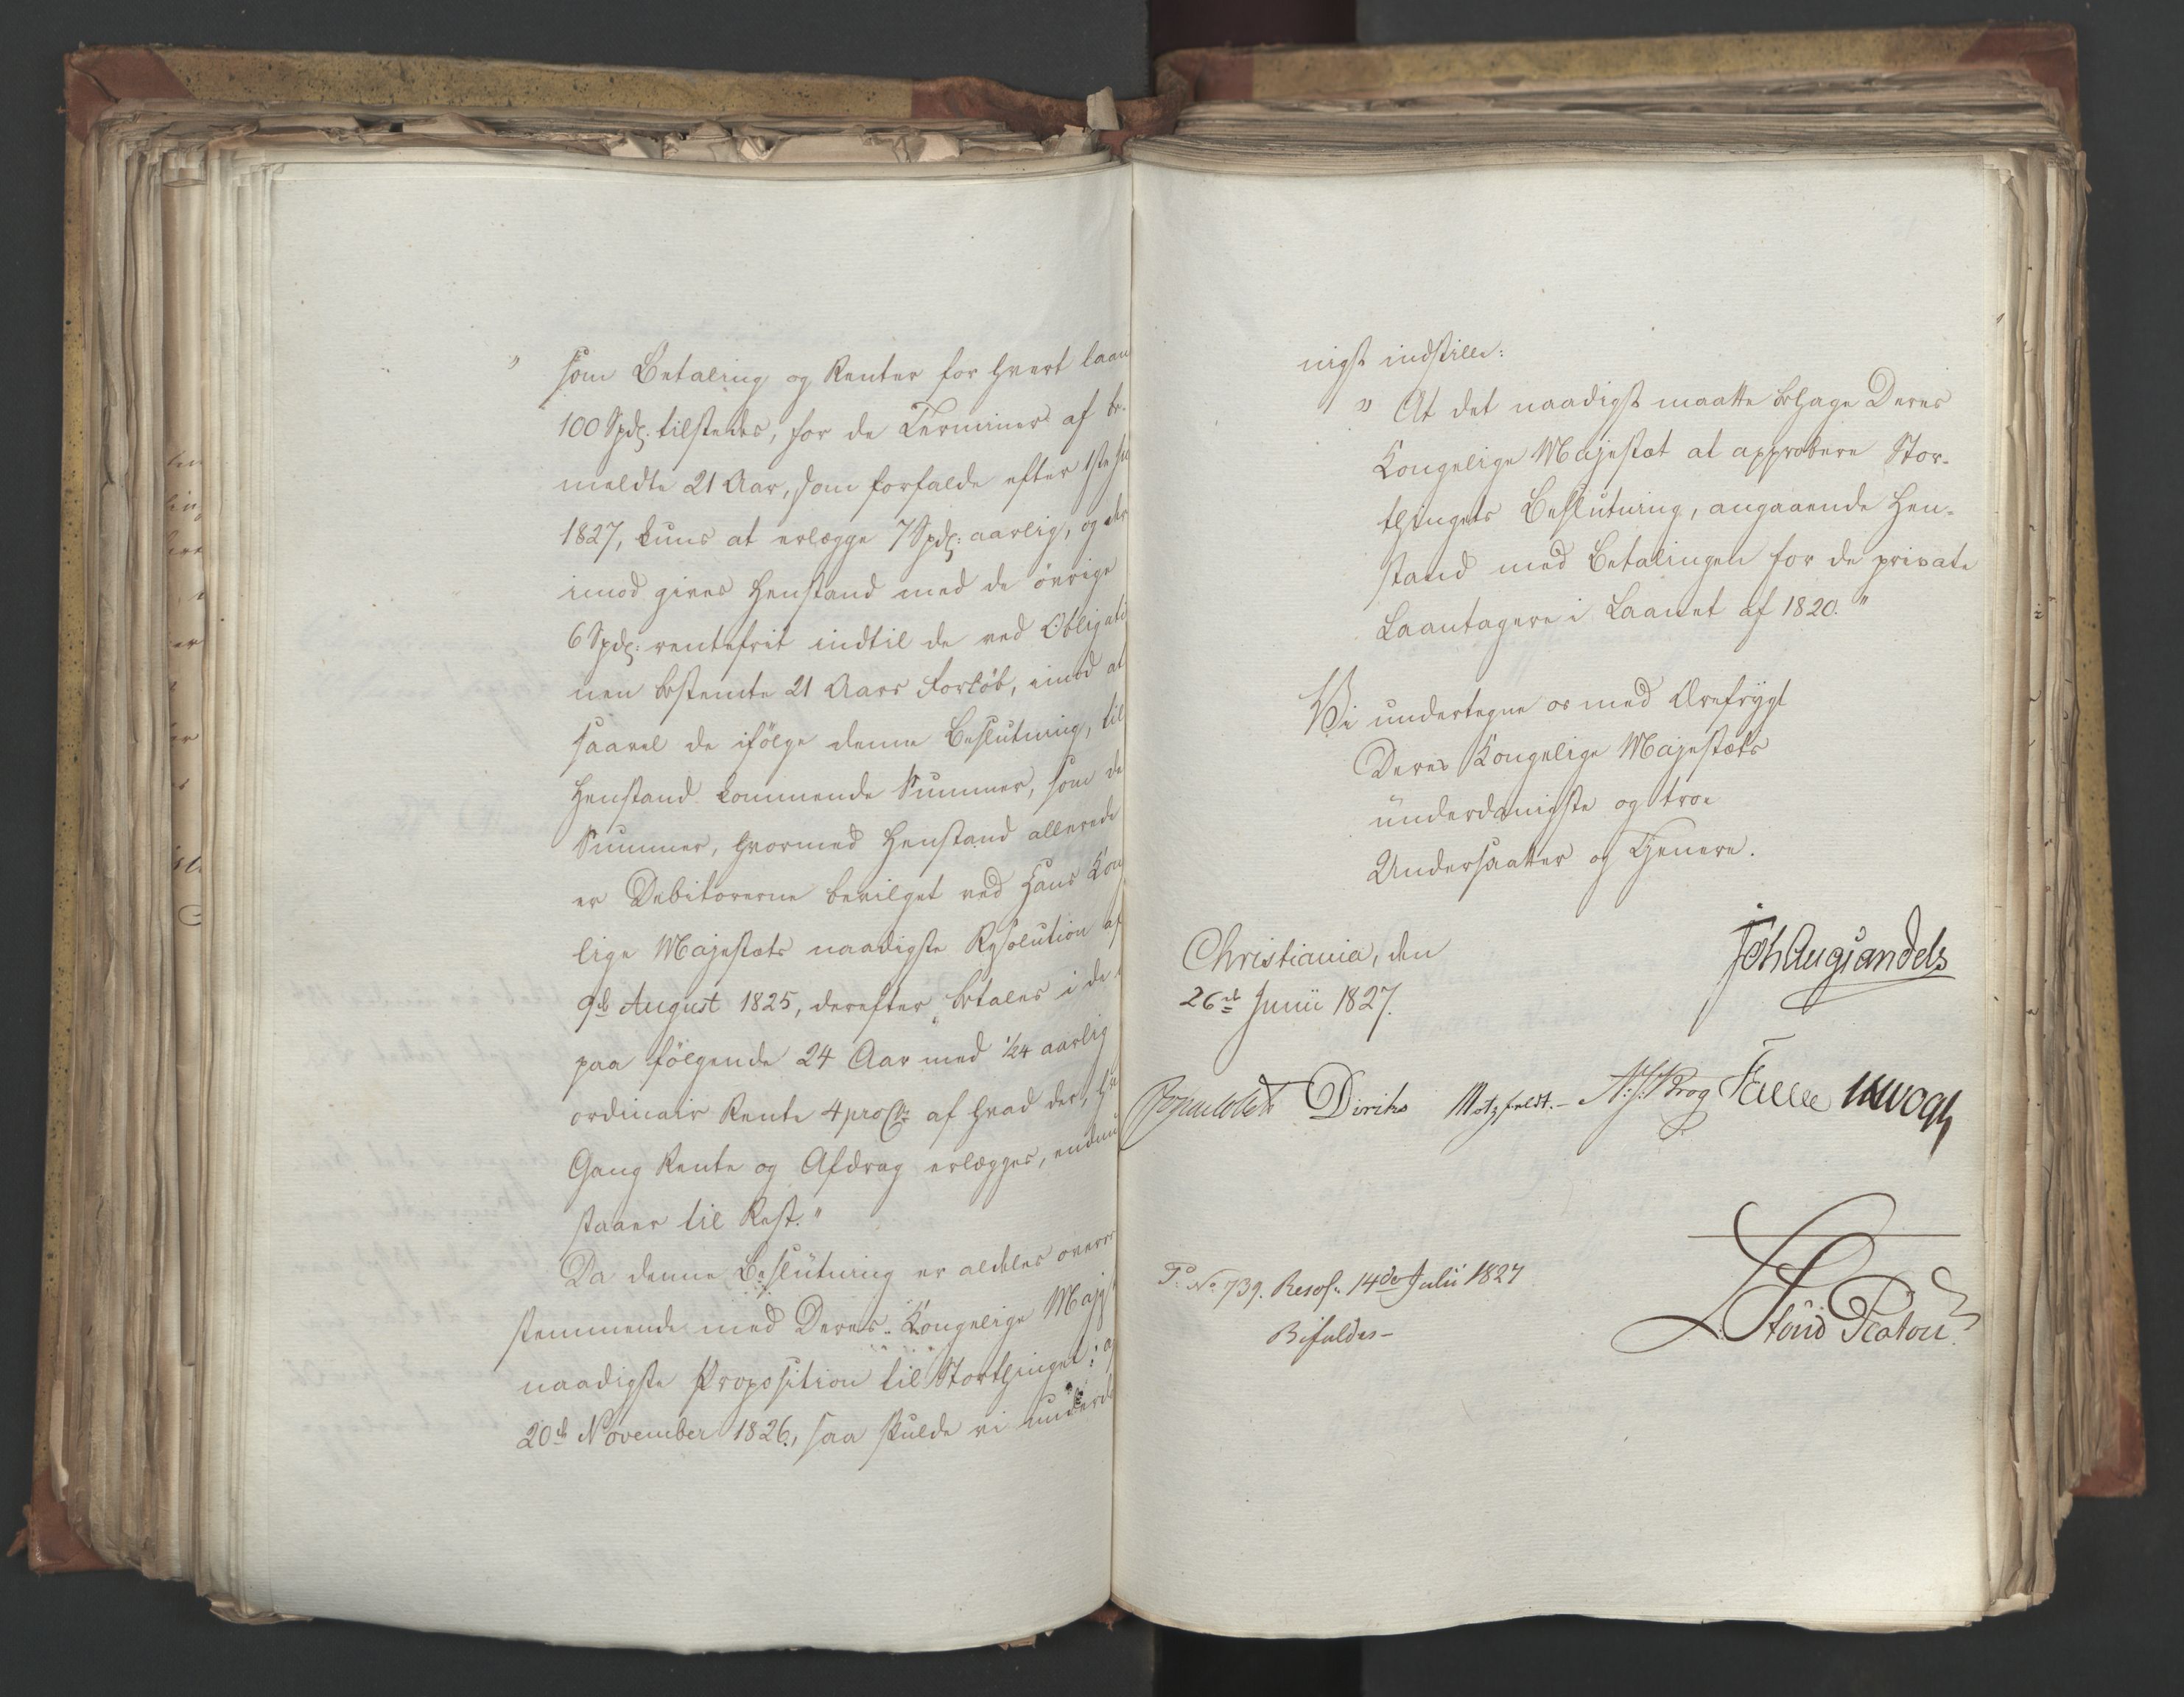 " som Betaling og Renter for hvert laan
100 Spdr. tilstedes, for de Terminer af be-
meldte 21 Aar, som forfalde efter 1ste Ju
1827, kuns at erlægge 7 Spdr. aarlig, og der
imod gives Henstand med de øvrige
6 Spdr. rentefrit indtil de ved Obligati
nen bestemte 21 Aars Forløb, imod at
saavel de ifølge denne Beslutning, til
Henstand kommende Summer, som de
Summer, hvormed Henstand allerede
er Debitorerne bevilget ved Hans Kon
lige Majestæts naadigste Resolution af
9de August 1825, derefter betales i de
paa følgende 24 Aar med 1/24 aarlig
ordinair Rente 4 pro Ct. af hvad der,
Gang Rente og Afdrag erlægges, endnu
staaer til Rest."
Da denne Beslutning er aldeles overe
stemmende med Deres Kongelige Majest
naadigste Proposition til Storthinget
20de November 1826, saa skulde vi underd
nigst indstille:
" At det naadigst maatte behage Deres
Kongelige Majestæt at approbere Stor-
thingets Beslutning, angaaende Hen-
stand med Betalingen for de private
Laantagere i Laanet af 1820."
Vi undertegne os med Ærefrygt
Deres Kongelige Majestæts
underdanigste og troe
Undersaatter og Tjenere.
Christiania, den
26de Junii 1827.
Joh Aug Sandels
Diriks Motzfeldt. Krog Fasting
P. No 739. Resol. 14de Julii 1827
Bifaldes-
Platou